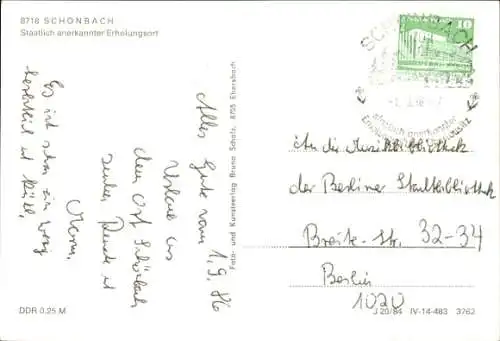 8718 SCHÖNBACH
Staatlich anerkannter Erholungsort
10
SCHÖNBACH
staatlich anerkannter
Alles Gute vom 1.9.86
Urlaub aus
dem Ort Schönbach
Es ist schon ein wenig
herbstlich und kühl.
Foto- und Kunstverlag Bruno Scholz, 8705 Ebersbach
An die Musikbibliothek
der Berliner Stadtbibliothek
Breite-Str. 32-34
Berlin
1020
DDR 0,25 M
J 20/84 IV-14-483 3762